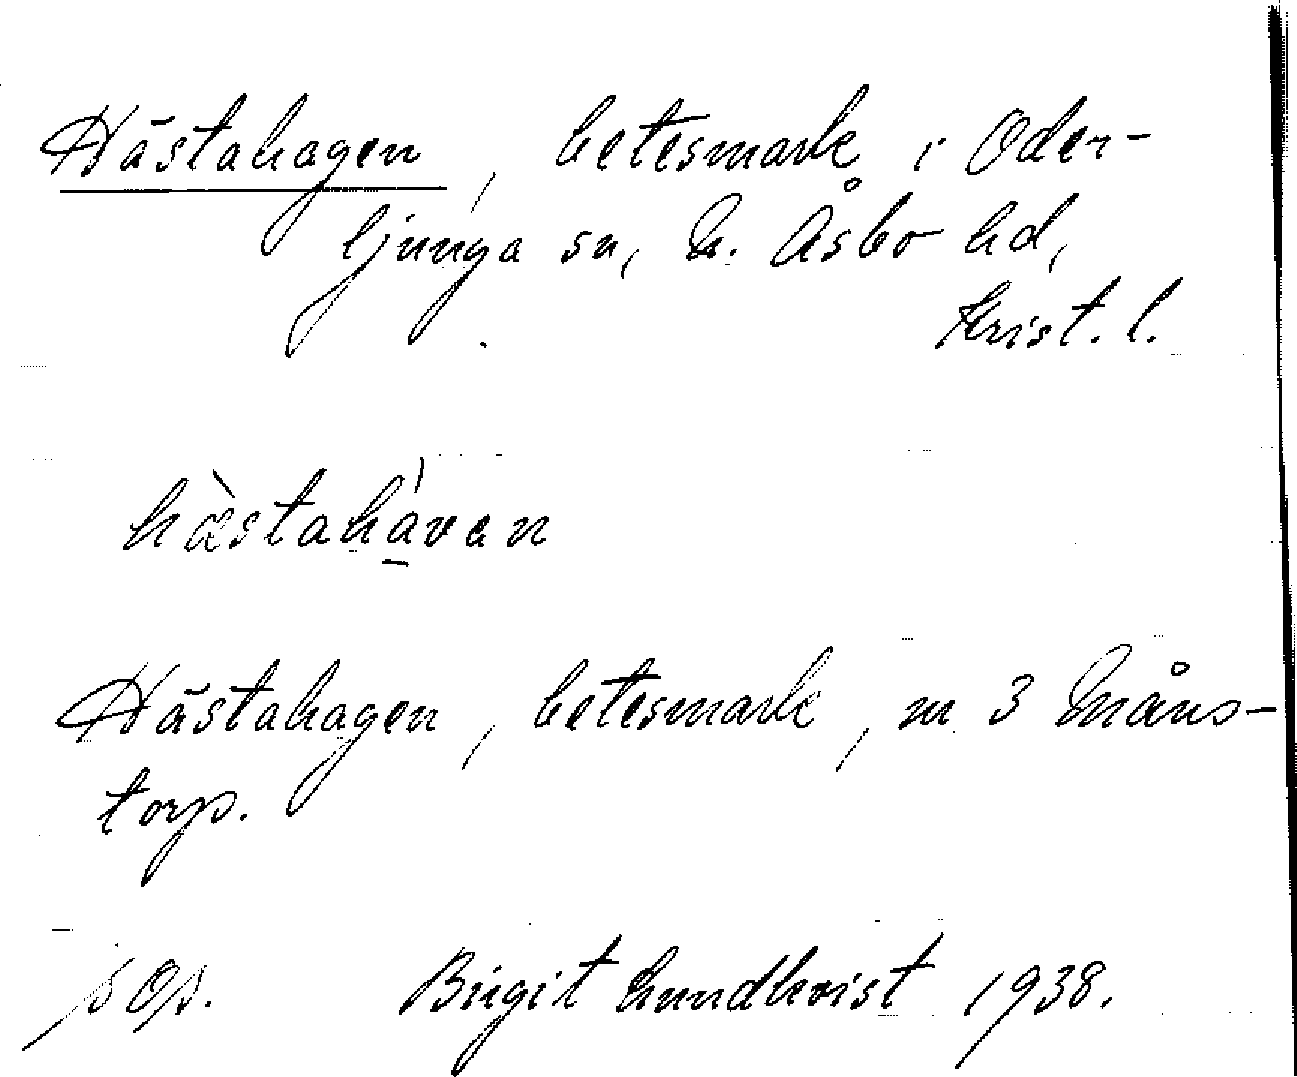 Hästahagen, betesmark i Oder-
ljunga sn, N. Åsbo hd,
Krist. l.
hæ̀stahávan
Hästahagen, betesmark, m 3 Måns-
torp.
Birgit Lundkvist 1938.